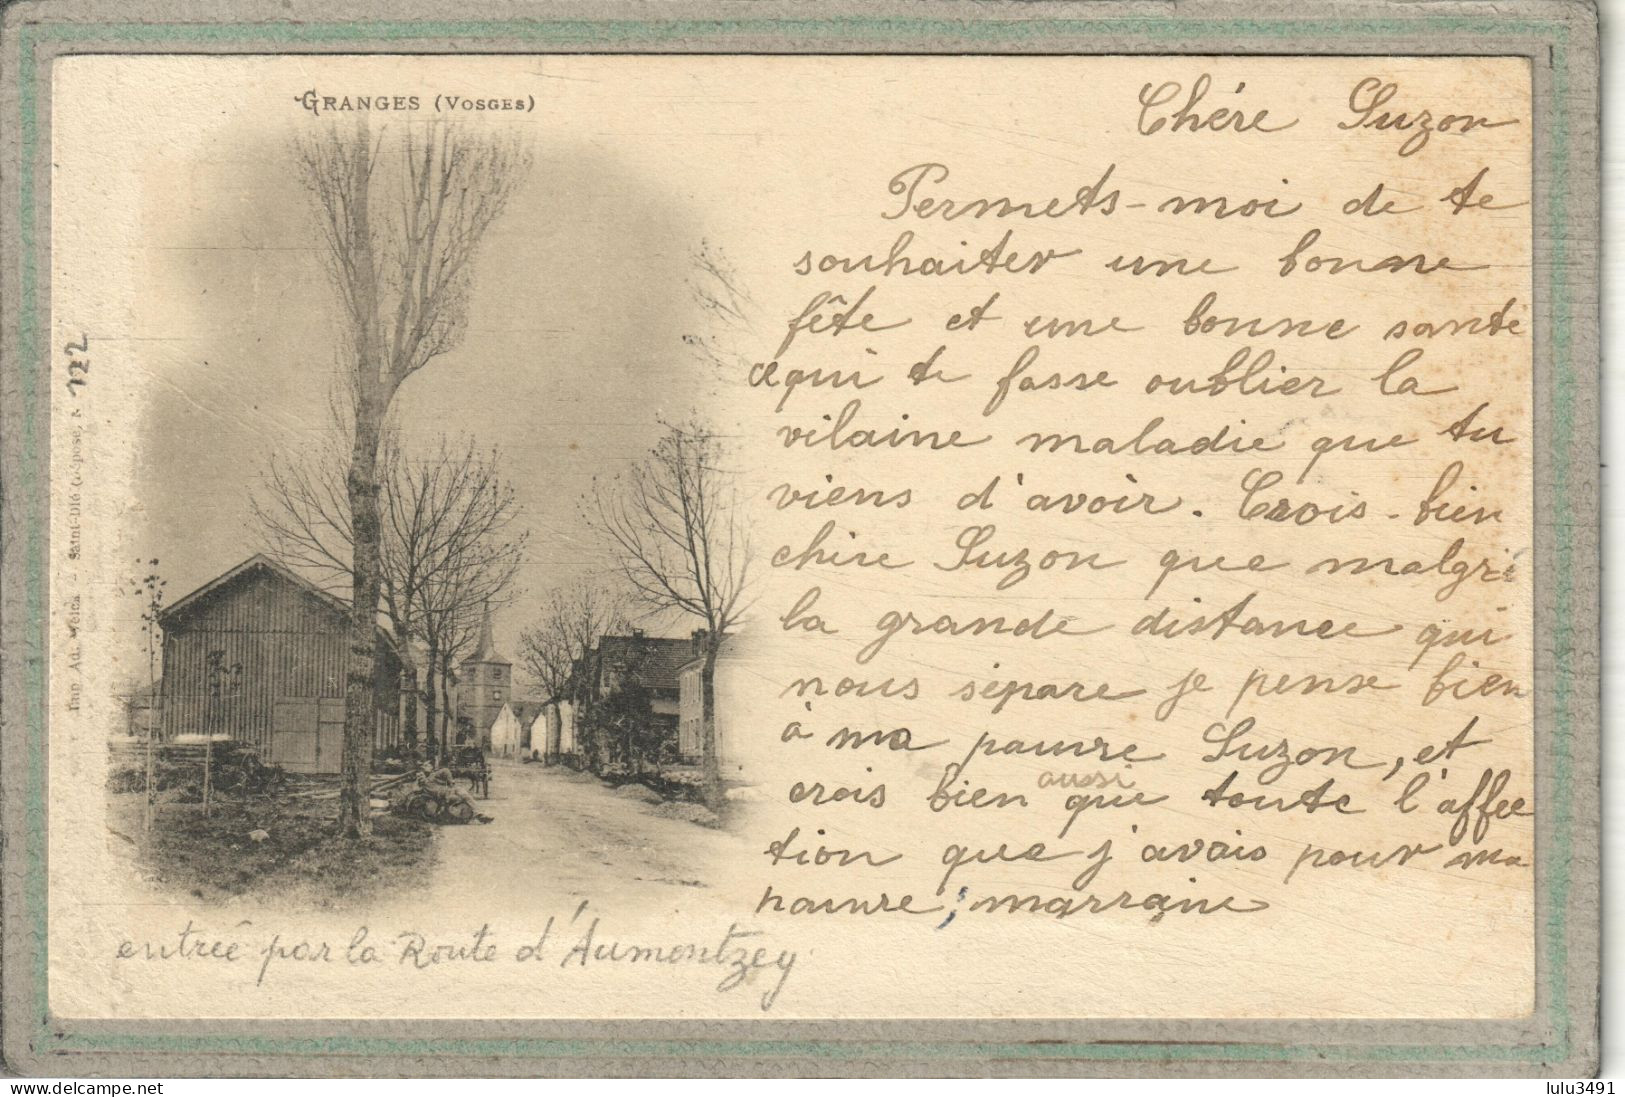 GRANGES (VOSGES)
Chére Suzon
Permets-moi de te
souhaiter une bonne
fête et une bonne santé
ce qui te fasse oublier la
vilaine maladie que tu
viens d'avoir. Crois-bien
chire Suzon que malgré
la grande distance qui
nous sépare je pense bien
à ma pauvre Suzon, et
aussi
crois bien que toute l'affec
tion que j'avais pour ma
pauvre, marraine
entrée par la Route d'Aumontzey
122
Imp. Ad. Weick - Saint-Dié (déposé, N
www.delcampe.net
lulu3491